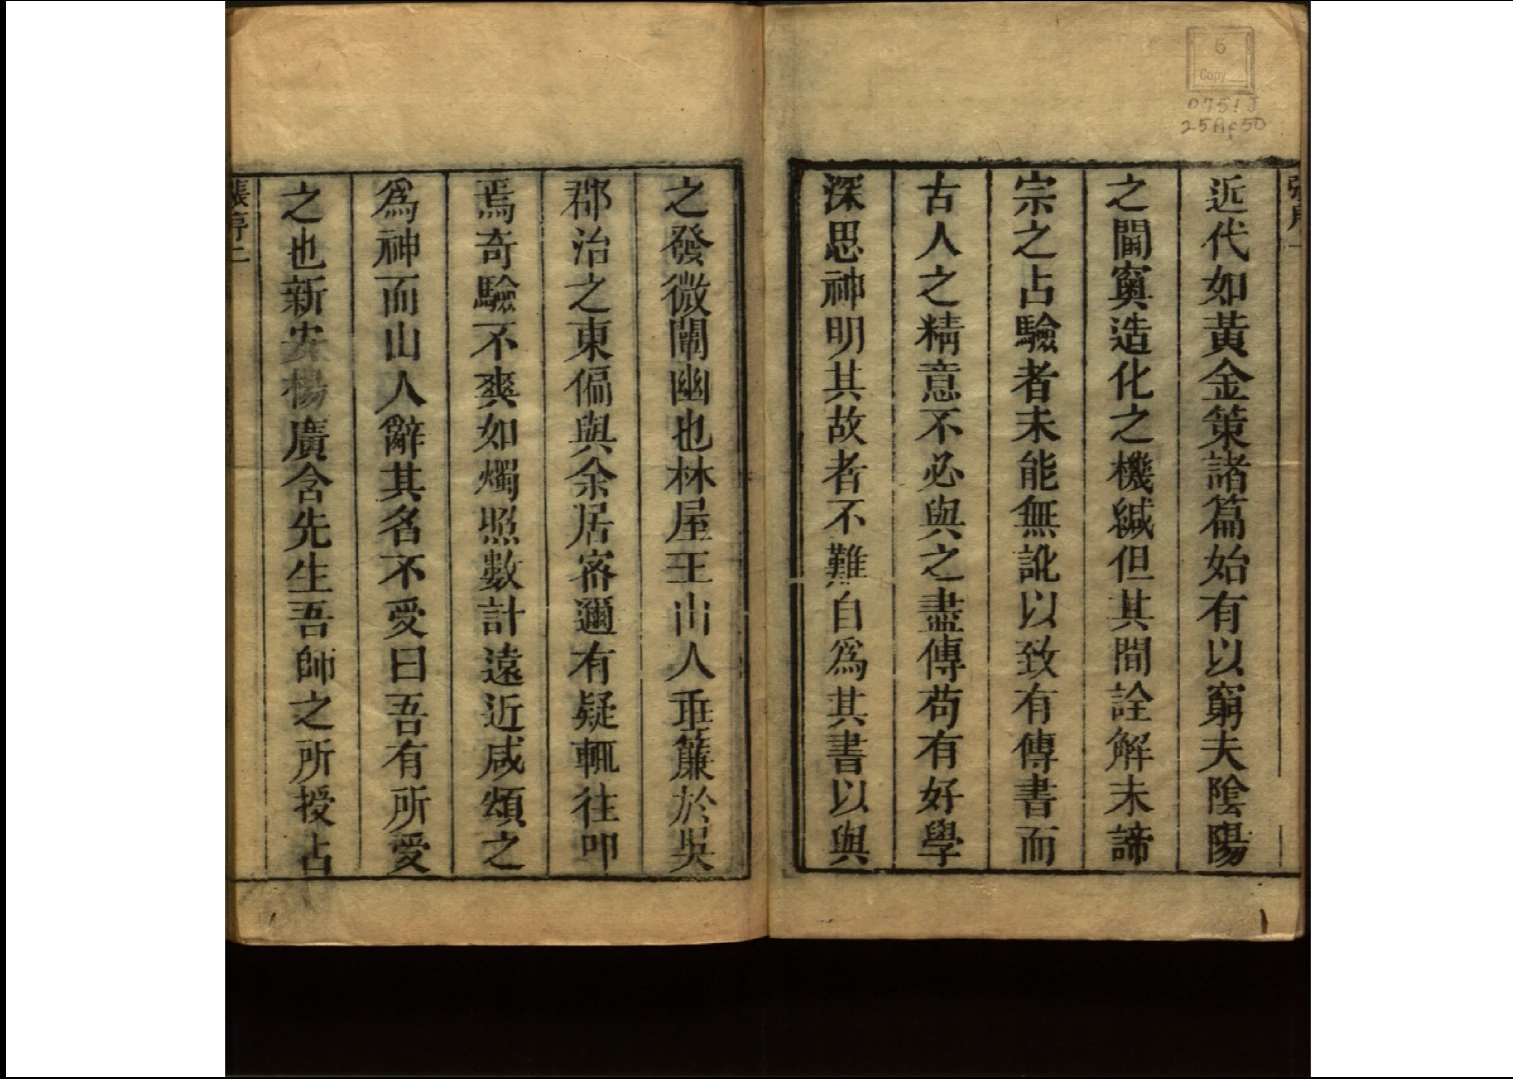 6
Copy
0751J
張序一
近代如黃金策諸篇始有以窮夫陰陽
之閫窾造化之機緘但其間詮解未諦
宗之占驗者未能無訛以致有傳書而
古人之精意不必與之盡傳苟有好學
深思神明其故者不難自爲其書以與
之發微闡幽也林屋王山人垂簾於吳
郡治之東偏與余居密邇有疑輒往叩
焉奇驗不爽如燭照數計遠近咸頌之
爲神而山人辭其名不受曰吾有所愛
之也新安楊廣含先生吾師之所授占
張序二